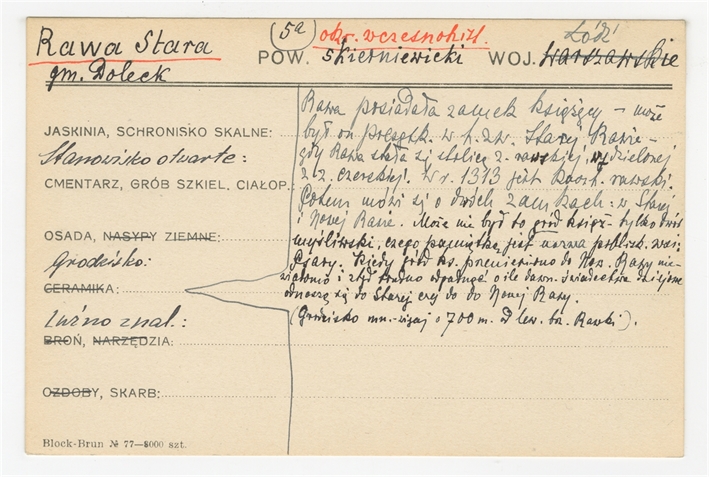 Rawa Stara (5a) okr. wczesnohist. Łódź
gm. Doleck POW. skierniewicki WOJ. warszawskie
Rawa posiadała zamek książęcy – może
JASKINIA, SCHRONISKO SKALNE: był on początk. w t. zw. Starej Rawie –
Stanowisko otwarte: gdy Rawa stała się stolicą z. rawskiej, wydzielonej
CMENTARZ, GRÓB SZKIEL. CIAŁOP.: z z. czerskiej. W r. 1313 jest kaszt. rawski.
Potem mówi się o dwóch zamkach: w Starej
i Nowej Rawie. Może nie był to gród książ. tylko dwór
OSADA, NASYPY ZIEMNE: myśliwski, czego pamiątką jest nazwa poblisk. wsi
Grodzisko: Psary. Kiedy gród ks. przeniesiono do Now. Rawy nie-
CERAMIKA: wiadomo i stąd trudno odgadnąć o ile dawn. świadectwa dziejowe
odnoszą się do Starej czy do do Nowej Rawy.
Luźno znal.: (Grodzisko mn. - więcej o 700 m. od lew. brz. Rawki).
BROŃ, NARZĘDZIA:
OZDOBY, SKARB:
Block-Brun № 77—8000 szt.